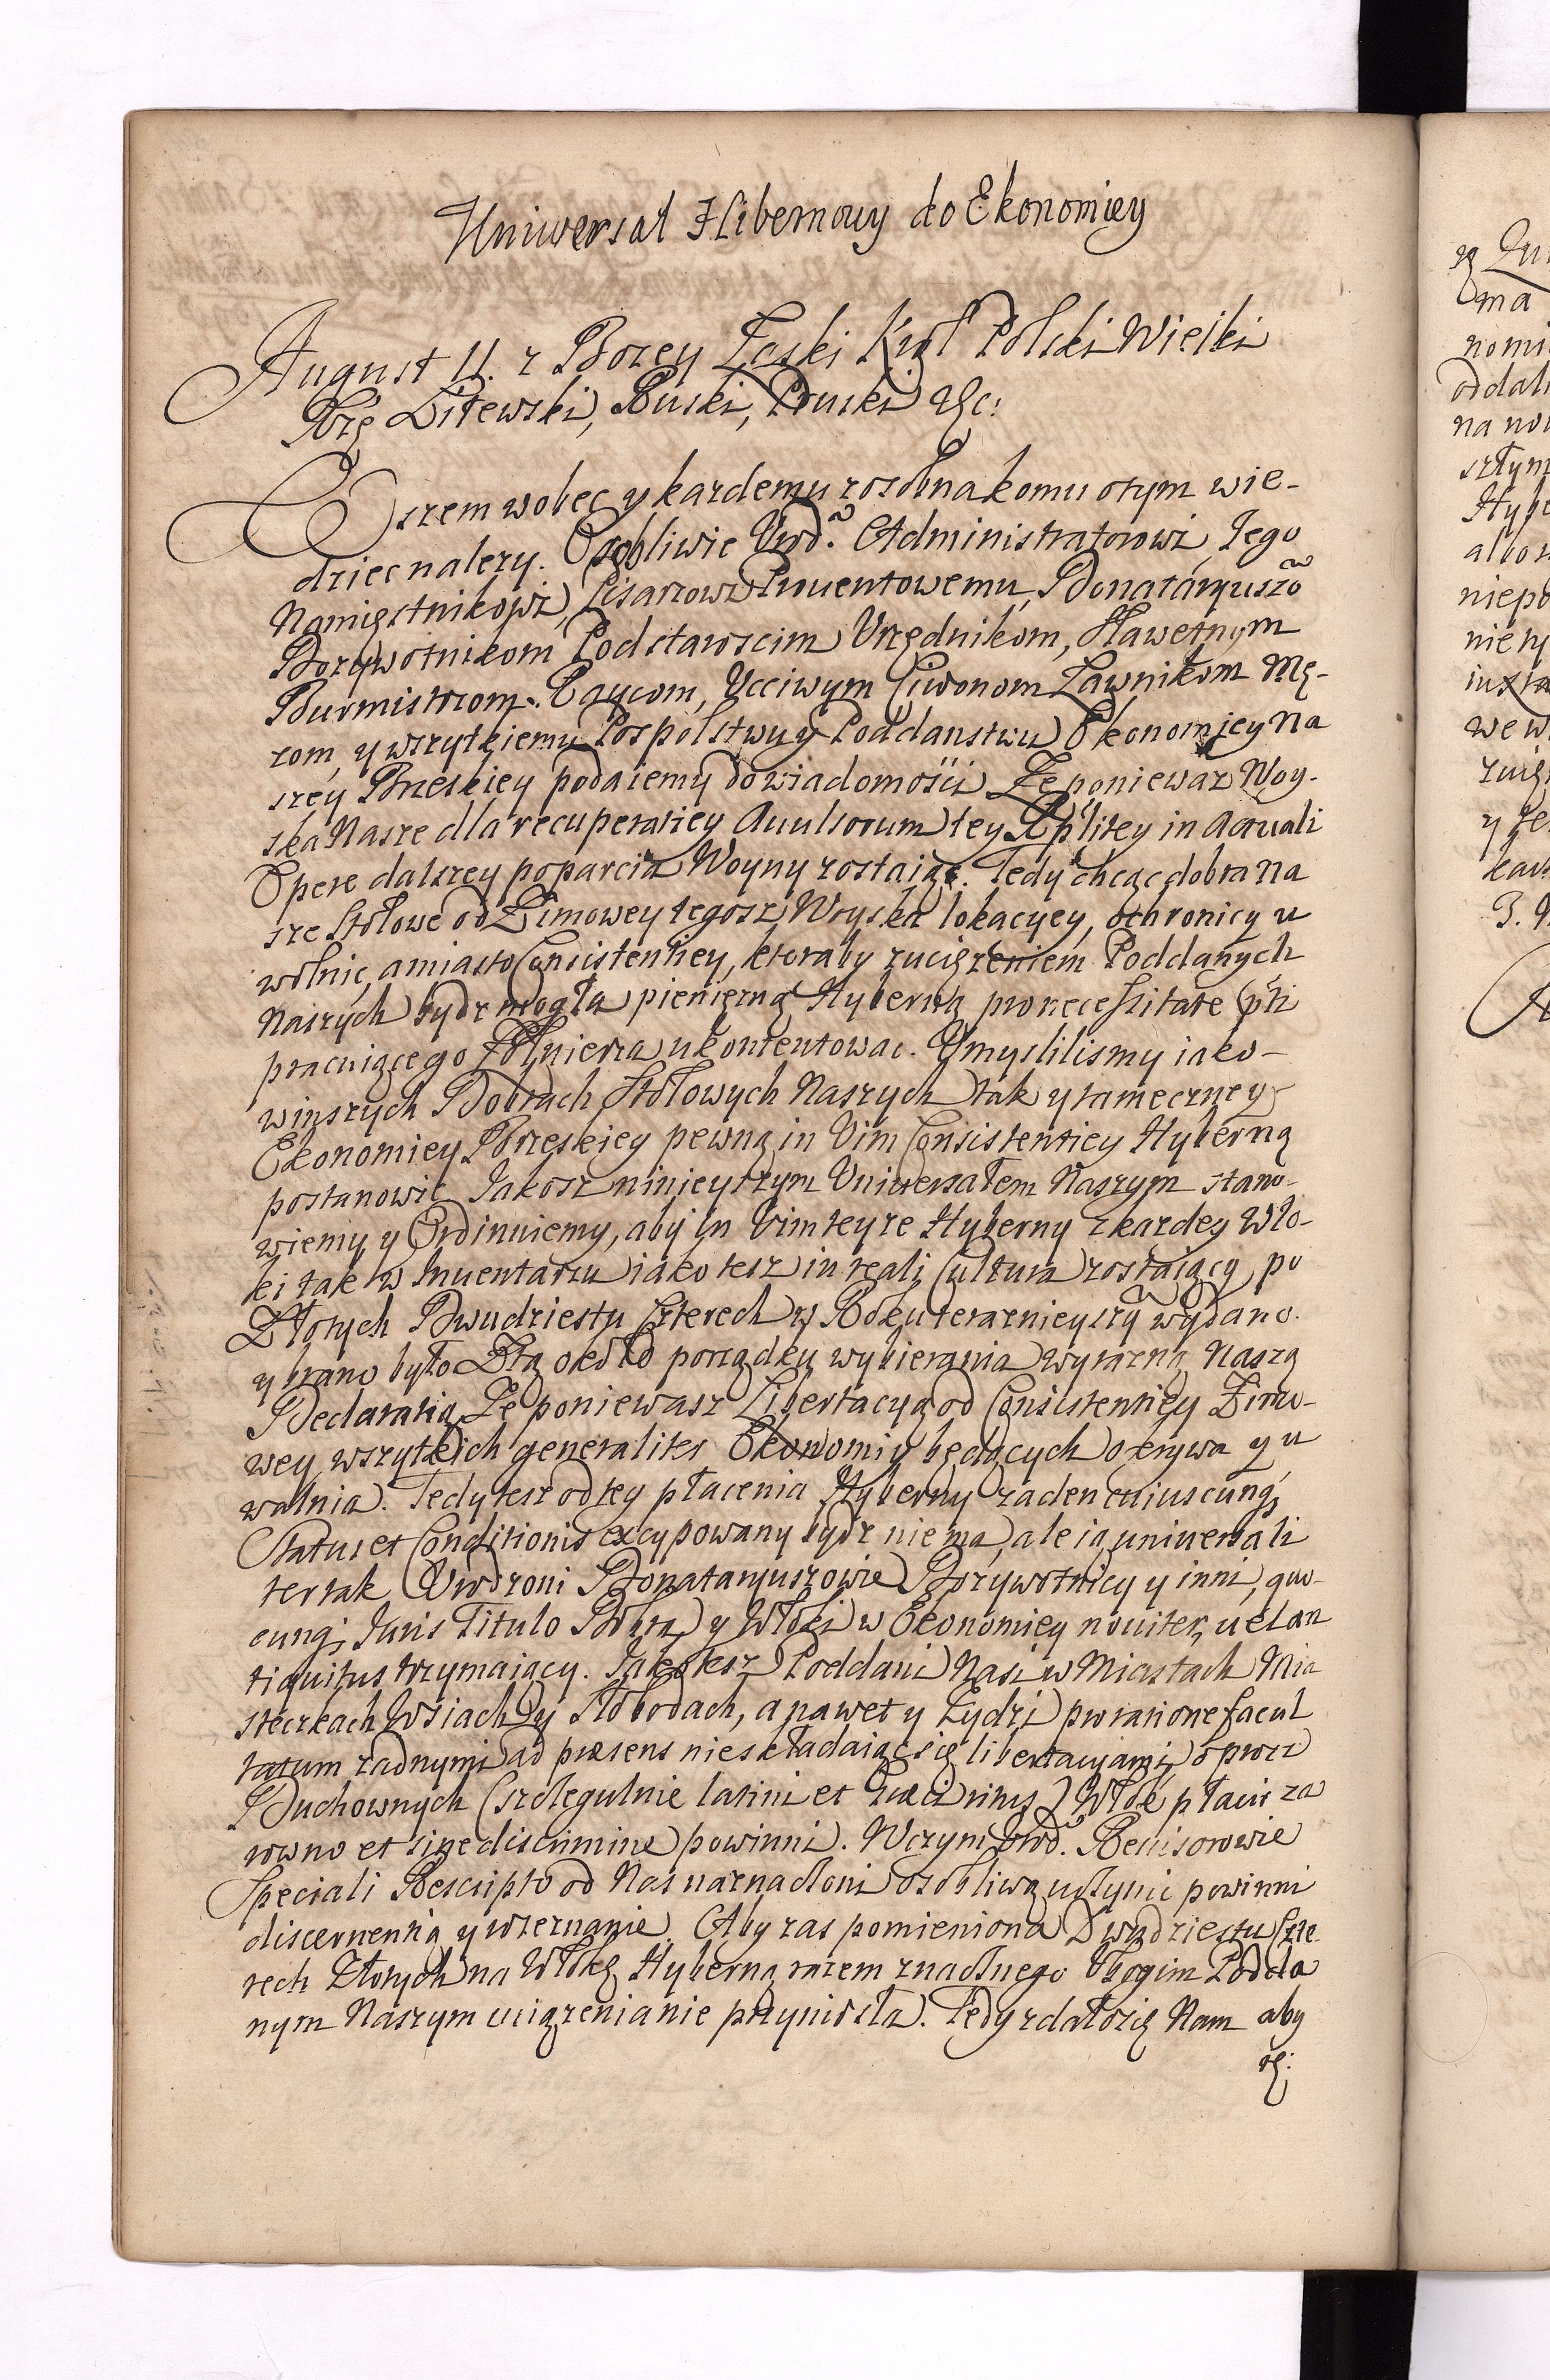 Uniwersał Hibernowy do Ekonomiey
August II. z Bozey Łaski Krol Polski Wielki
Xże Litewski, Ruski, Pruski &c:
Wszem wobec y kazdemu zosobna komu otym wie-
dziec nalezy. Osobliwie Urod. Administratorowi, Iego
Namięstnikowi, Pisarzowi Prouentowemu, Donataryuszo
Dozywotnikom Podstaroscim Urzędnikom, Sławetnym
Burmistrzom. Raycom, Ucciwym Ciwonom Ławnikom Mę-
zom, y wszytkiemu Pospolstwu y Poddanstwu Ekonomiey Na
szey Brzeskiey podaiemy do wiadomości Ze poniewaz Woy-
ska Nasze dla recuperatiey Auulsorum tey Rplitey in Actuali
Opere dalszey poparcia Woyny zostaią. Tedy chcąc dobra na
sze Stołowe od Zimowey tegosz Woyska lokacyey, ochronicy u
wolnic, a miasto Consistentiey, ktoraby zuciązeniem Poddanych
Naszych bydz mogła pieniezną Hyberną pro necessitate
pracuiącego Zołnierza ukontentowac. Umyslilismy iako-
winszych Dobrach Stołowych Naszych tak y tameczney
Ekonomiey Brzeskiey pewną in Vim Consistentiey Hyberną
postanowic Jakosz ninieyszym Uniwersałem Naszym stano-
wiemy y Ordinuiemy, aby in Vim teyze Hyberny z kazdey Wło-
ki tak w Inuentarzu iako tesz in reali Cultura zostaiący po
Złotych Dwudziestu Czterech w Roku terazniejszy wydano.
y brano było Ztą około porządku wybierania wyrazną Naszą
Declaratią Ze poniewasz Libertacyą od Consistentiey Zimo-
wey wszytkich generaliter Ekonomiy będących okrywa y u
walnia. Tedy tesz od tey płacenia Hyberny zaden cuiuscunq
Status et Conditionis excypowany bydz nie ma, ale ią uniuersali
ter tak Urodzoni Donataryuszowie Dozywotnicy y inni, quo-
cunq; Iuris Titulo Dobra y Włoki w Ekonomiey nouiter, uel an
tiquitus trzymaiący. Jako tesz Poddani Nasi w Miastach Mia
steczkach Wsiach y Słobodach, a nawet y Zydzi pro ratione facul
tatum zadnymi ad præsens nieskładaiąc się libertacyiami, oprocz
Duchownych (szczegulnie latini et Græci ritus) Włok płacic za
rowno et sine discrimine powinni. Wczym Urod. Reuisorowie
Speciali Rescripto od Nas naznaczoni osobliwą uczynic powinni
discernentią y wzeznanie. Aby zas pomieniona Dwudziestu Czte
rech Złotych na Włokę Hyberna razem znacznego Ubogim Podda
nym Naszym uciązenia nie przyniosła. Tedy zdało się Nam aby